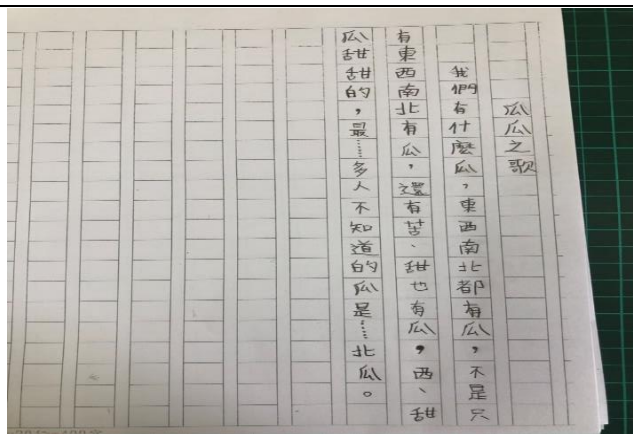 瓜瓜之歌
我們有什麼瓜，東西南北都有瓜，不是只
有東西南北有瓜，還有苦、甜也有瓜，西、甜
瓜甜甜的，最……多人不知道的瓜是……北瓜。